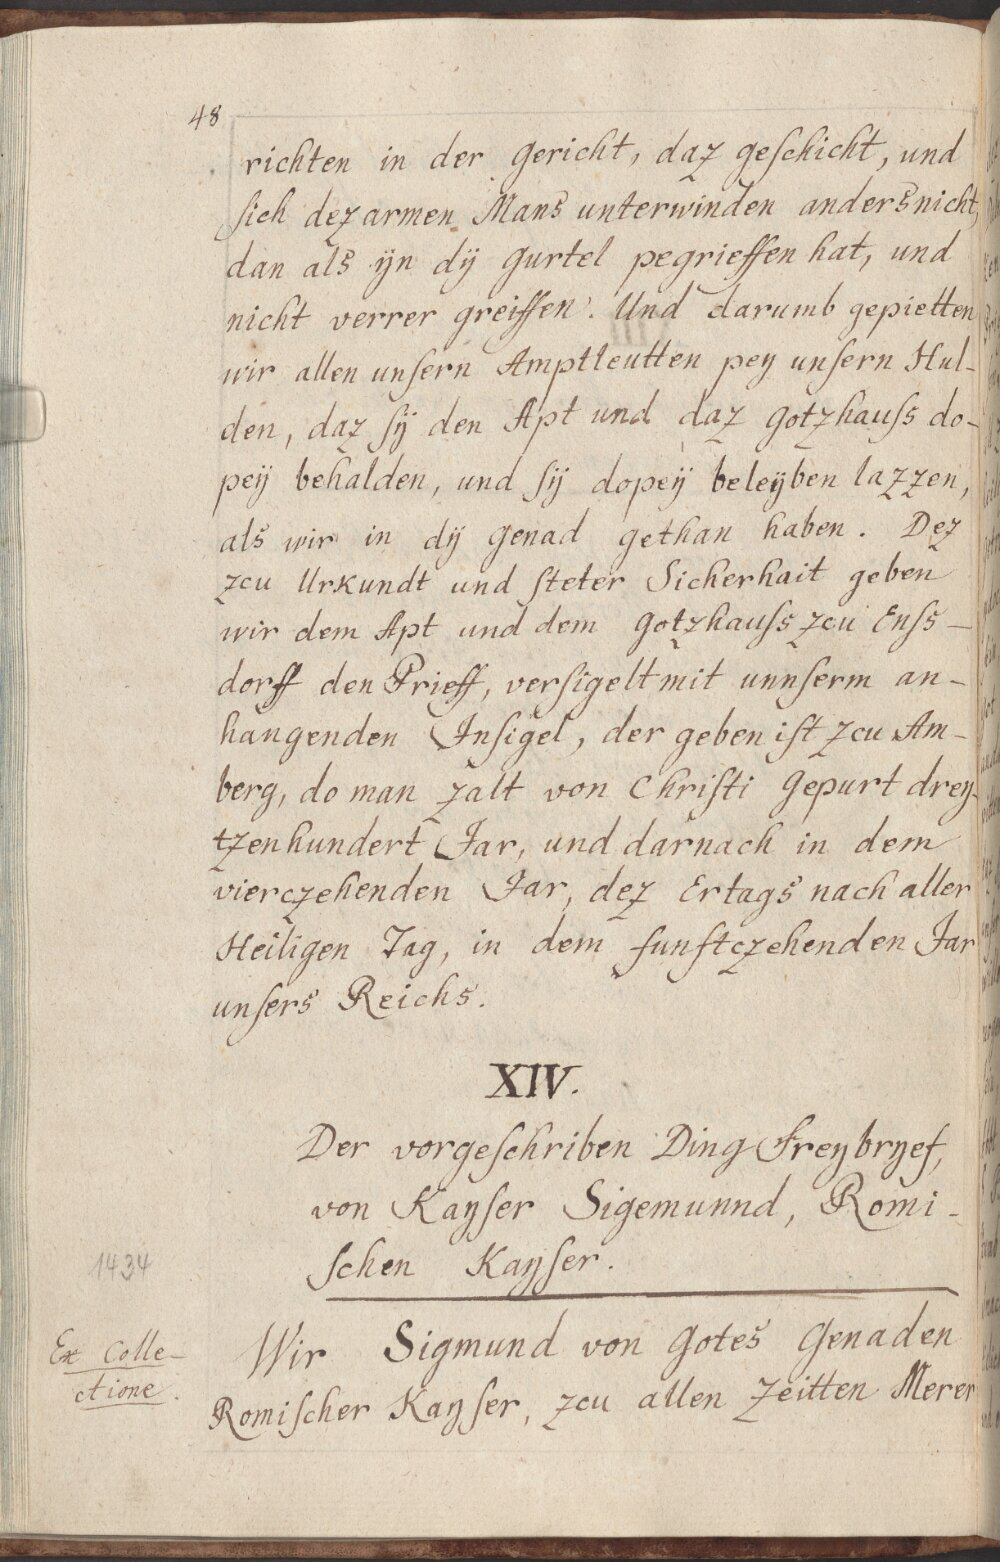 48
richten in der gericht, daz geschicht, und
sich dez armen Mans unterwinden anders nicht,
dan als ÿn dÿ gurtel pegrieffen hat, und
nicht verrer greiffen. Und darumb gepietten
wir allen unsern Amptleutten peÿ unsern Hul-
den, daz sÿ den Apt und daz gotzhauss do-
peÿ behalden, und sÿ dopeÿ beleÿben lazzen,
als wir in dÿ genad gethan haben. Dez
zcu Urkundt und steter Sicherhait geben
wir dem Apt und dem gotzhauss zcu Enss-
dorff den Prieff, versigelt mit unnserm an-
hangenden Insigel, der geben ist zcu Am-
berg, do man zalt von Christi gepurt drey-
tzenhundert Jar, und darnach in dem
vierczehenden Jar, dez Ertags nach aller
Heiligen Tag, in dem funftczehenden Jar
unsers Reichs.
XIV.
Der vorgeschriben Ding Freybryef,
von Kayser Sigemunnd, Romi-
schen Kayser.
1434
Ex Colle-
ctione.
Wir Sigmund von gotes Genaden
Romischer Kayser, zcu allen Zeitten Merer